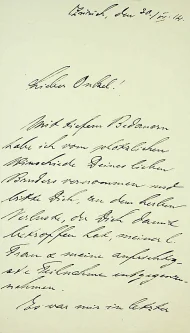 Zürich, den 30./VI. 14.
Lieber Onkel!
Mit tiefem Bedauern
habe ich vom plötzlichen
Hinschiede Deines lieben
Bruders vernommen und
bitte Dich, an dem herben
Verluste, der Dich damit
betroffen hat, meiner l.
Frau & meine aufrichtig-
ste Teilnahme entgegenzu-
nehmen.
Es war mir in letzter